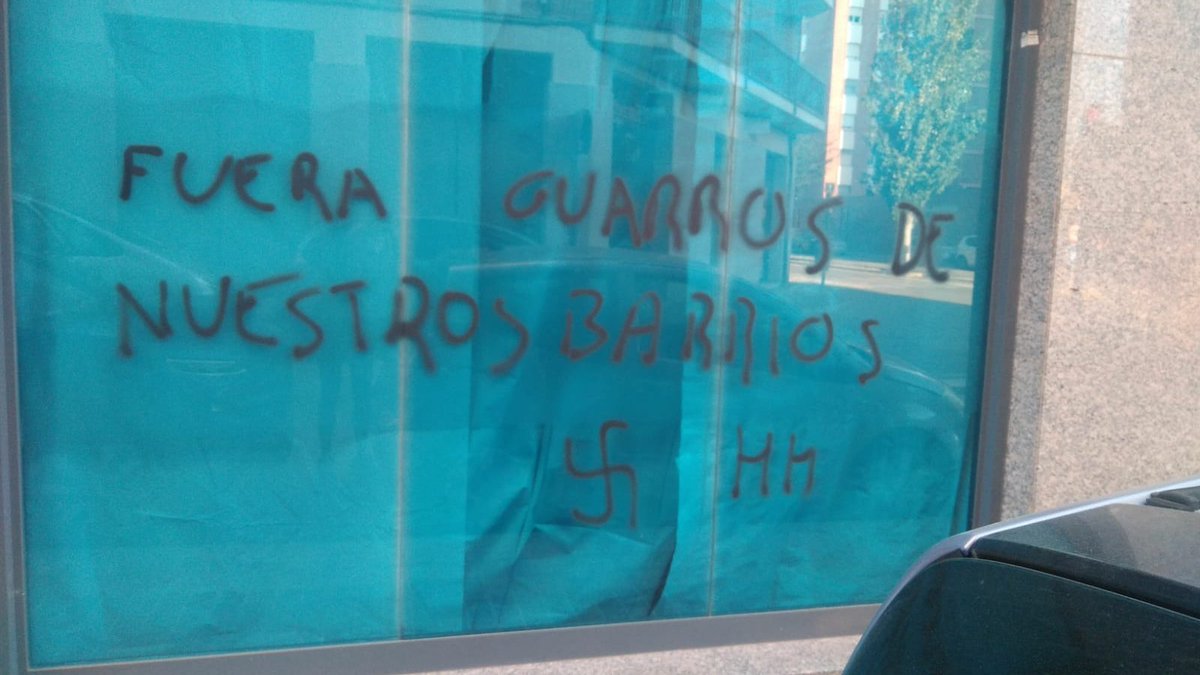 FUERA GUARROS DE
NUESTROS BARRIOS
HH